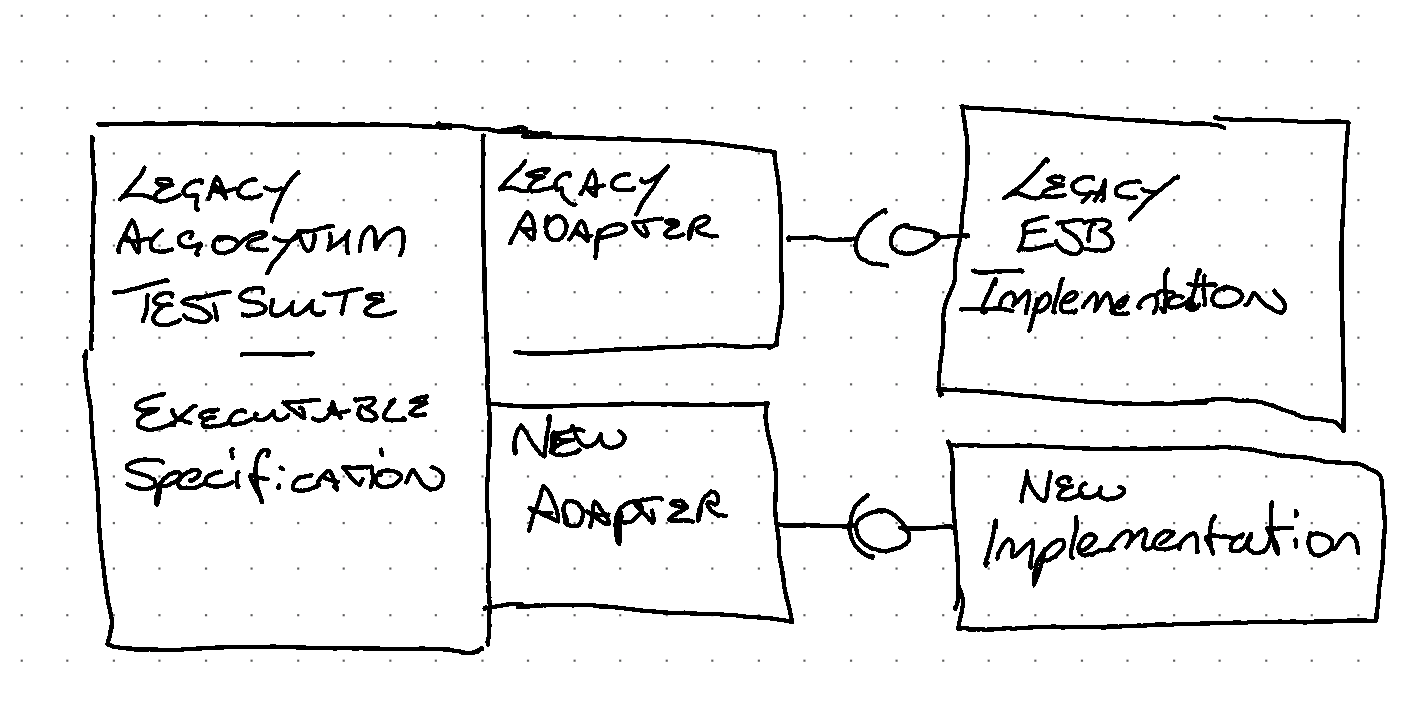 LEGACY
ALGORYTHM
TEST SUITE
EXECUTABLE
Specification
LEGACY
ADAPTER
NEW
ADAPTER
LEGACY
EJB
Implementation
NEW
Implementation